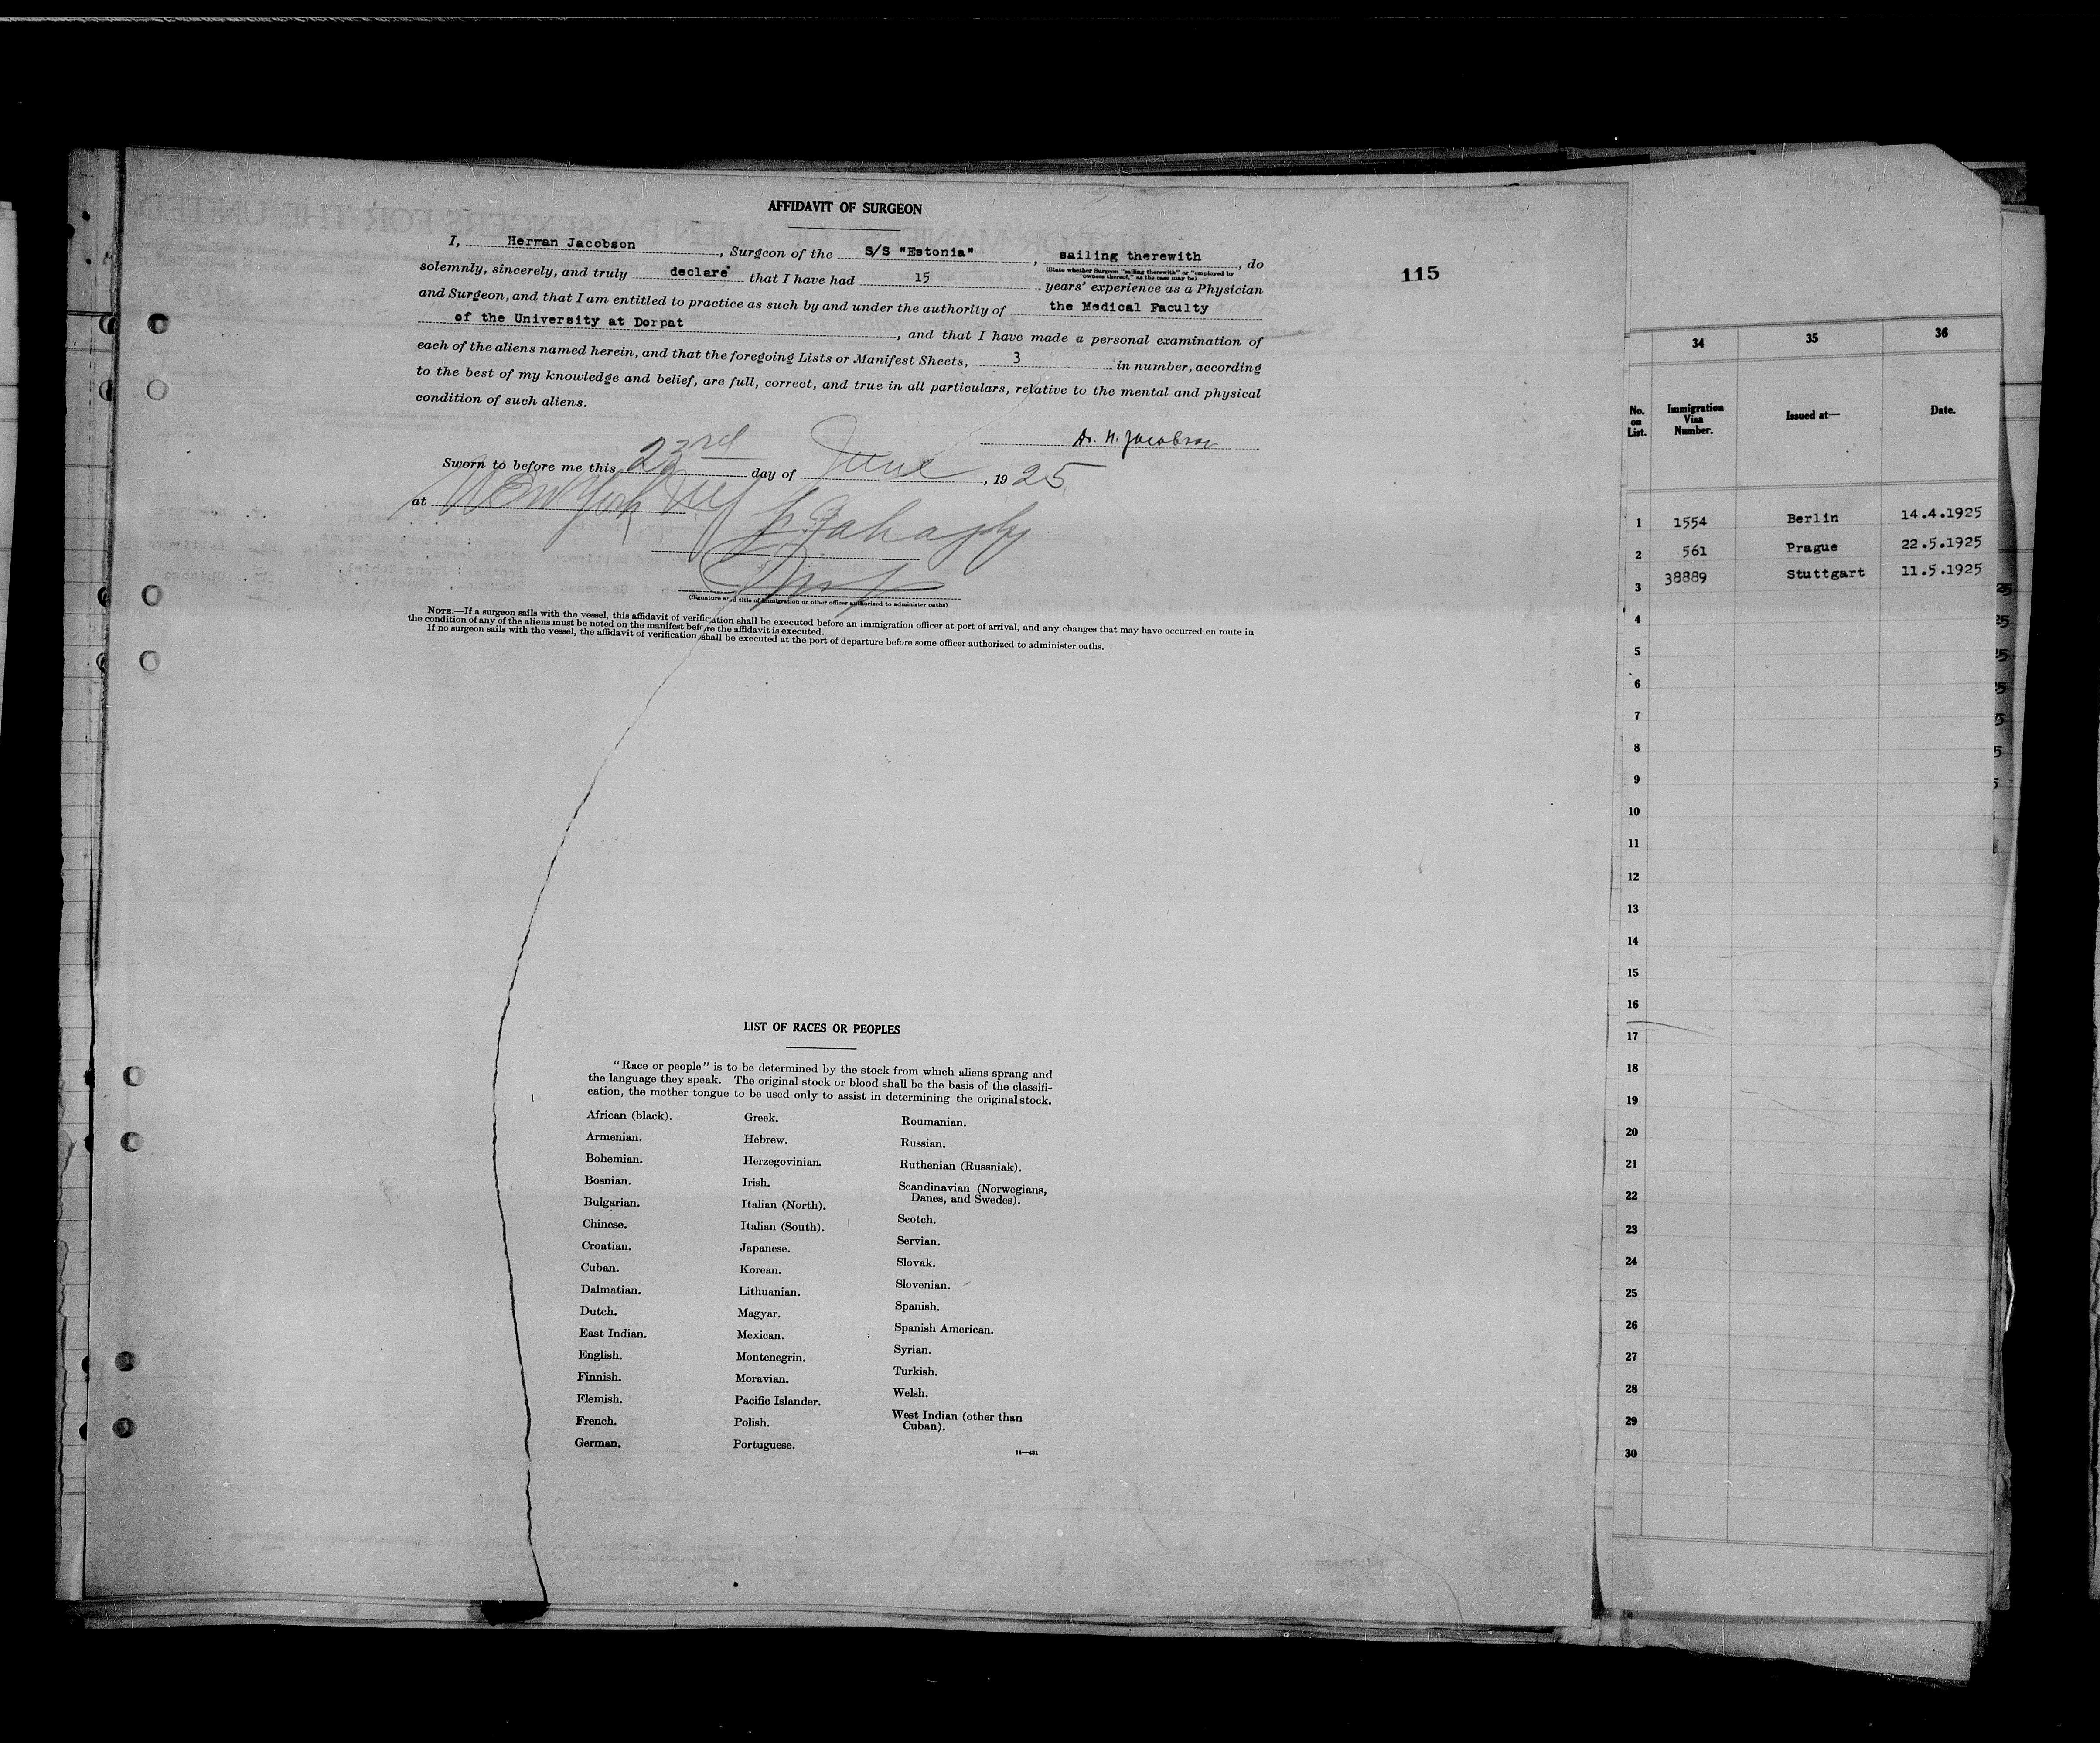 AFFIDAVIT OF SURGEON
115
I, Herman Jacobson, Surgeon of the S/S "Estonia", sailing therewith, do
(State whether Surgeon "sailing therewith" or "employed by owners thereof," as the case may be)
solemnly, sincerely, and truly declare that I have had 15 years' experience as a Physician
and Surgeon, and that I am entitled to practice as such by and under the authority of the Medical Faculty
of the University at Dorpat, and that I have made a personal examination of
each of the aliens named herein, and that the foregoing Lists or Manifest Sheets, 3 in number, according
to the best of my knowledge and belief, are full, correct, and true in all particulars, relative to the mental and physical
condition of such aliens.
Dr. H. Jacobson
Sworn to before me this 23rd day of June, 1925
at New York
(Signature and title of immigration or other officer authorized to administer oaths)
NOTE.—If a surgeon sails with the vessel, this affidavit of verification shall be executed before an immigration officer at port of arrival, and any changes that may have occurred en route in
the condition of any of the aliens must be noted on the manifest before the affidavit is executed.
If no surgeon sails with the vessel, the affidavit of verification shall be executed at the port of departure before some officer authorized to administer oaths.
LIST OF RACES OR PEOPLES
"Race or people" is to be determined by the stock from which aliens sprang and
the language they speak. The original stock or blood shall be the basis of the classifi-
cation, the mother tongue to be used only to assist in determining the original stock.
African (black).
Armenian.
Bohemian.
Bosnian.
Bulgarian.
Chinese.
Croatian.
Cuban.
Dalmatian.
Dutch.
East Indian.
English.
Finnish.
Flemish.
French.
German.
Greek.
Hebrew.
Herzegovinian.
Irish.
Italian (North).
Italian (South).
Japanese.
Korean.
Lithuanian.
Magyar.
Mexican.
Montenegrin.
Moravian.
Pacific Islander.
Polish.
Portuguese.
Roumanian.
Russian.
Ruthenian (Russniak).
Scandinavian (Norwegians,
Danes, and Swedes).
Scotch.
Servian.
Slovak.
Slovenian.
Spanish.
Spanish American.
Syrian.
Turkish.
Welsh.
West Indian (other than
Cuban).
34 35 36
No. on List. Immigration Visa Number. Issued at— Date.
1 1554 Berlin 14.4.1925
2 561 Prague 22.5.1925
3 38889 Stuttgart 11.5.1925
4
5
6
7
8
9
10
11
12
13
14
15
16
17
18
19
20
21
22
23
24
25
26
27
28
29
30